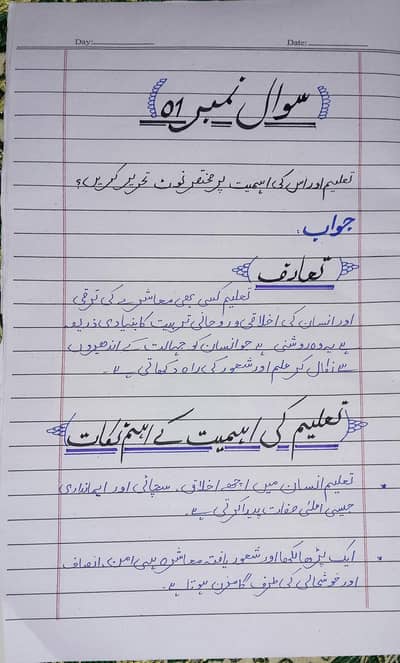 Day:
Date:
سوال نمبر 01
تعلیم اور اس کی اہمیت پر مختصر نوٹ تحریر کریں؟
جواب:
تعارف
تعلیم کسی بھی معاشرے کی ترقی
اور انسان کی اخلاقی و روحانی تربیت کا بنیادی ذریعہ
ہے یہ وہ روشنی ہے جو انسان کو جہالت کے اندھیروں
سے نکال کر علم اور شعور کی راہ دکھاتی ہے۔
تعلیم کی اہمیت کے اہم نکات
* تعلیم انسان میں اچھے اخلاق، سچائی اور ایمانداری
جیسی اعلیٰ صفات پیدا کرتی ہے۔
* ایک پڑھا لکھا اور شعور یافتہ معاشرہ ہی امن، انصاف
اور خوشحالی کی طرف گامزن ہوتا ہے۔